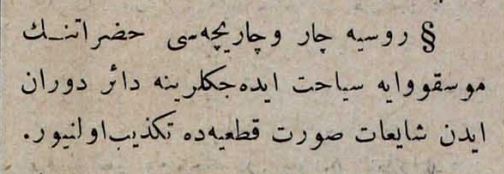 § روسيه چار وچاريچه‌سى حضراتنـك
موسقووايه سياحت ايده‌جكلرينه دائر دوران
ايدن شايعات صورت قطعيه‌ده تكذيب اولنيور.